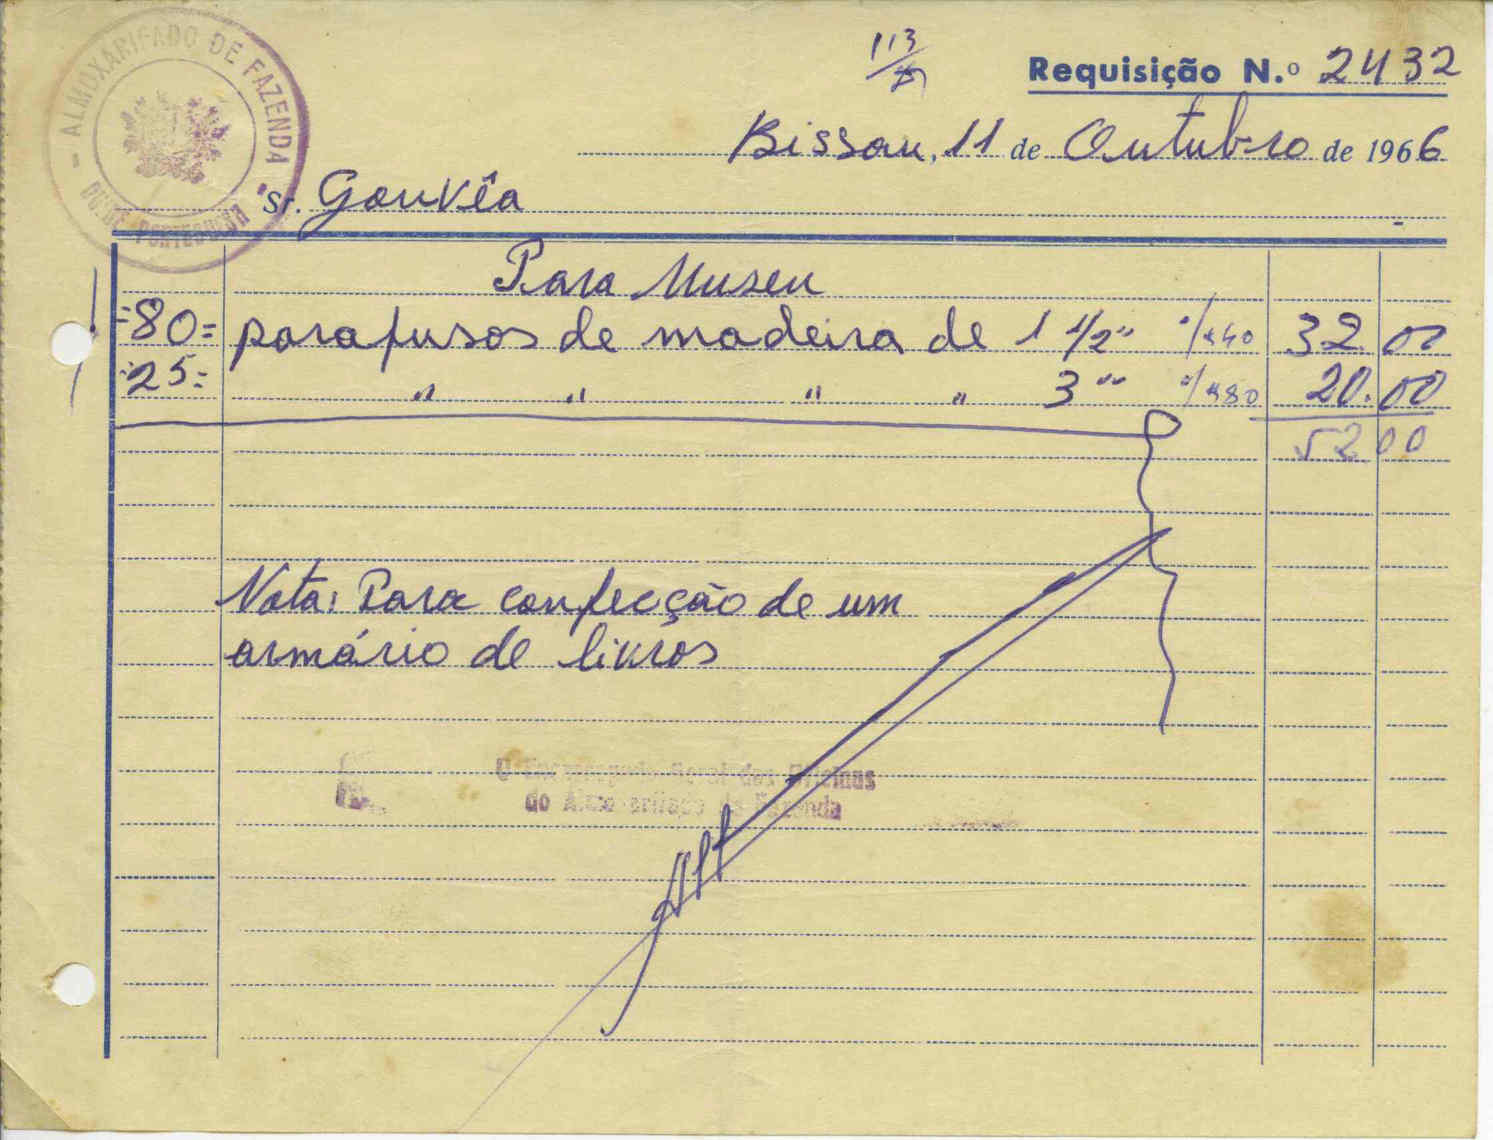 ALMOXARIFADO DE FAZENDA
113
Requisição N.º 2432
Bissau, 11 de Outubro de 1966
Sr. Gouvêa
Para Museu
=80= parafusos de madeira de 1 1/2" 32.00
=25= " " " " 3" 20.00
52 00
Nota: Para confecção de um
armário de livros
O Encarregado Geral das Oficinas
do Almoxarifado de Fazenda